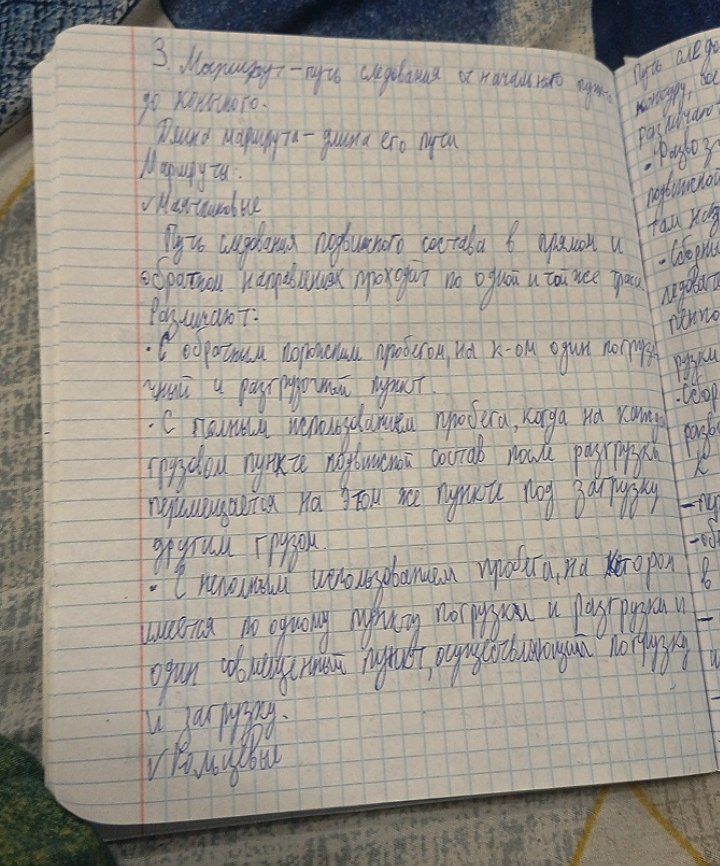 3. Маршрут – путь следования от начального пункта
до конечного.
Длина маршрута – длина его пути
Маршруты:
✓ Маятниковые
Путь следования подвижного состава в прямом и
обратном направлениях проходит по одной и той же трассе
Различают:
• С обратным порожним пробегом, на к-ом один погрузо
чный и разгрузочный пункт.
• С полным использованием пробега, когда на каждо
грузовом пункте подвижной состав после разгрузки
перемещается на этом же пункте под загрузку
другим грузом.
• С неполным использованием пробега, на котором
имеется по одному пункту погрузки и разгрузки и
один совмещенный пункт, осуществляющий погрузку
и загрузку.
✓ Кольцевые
Путь следо
контуру,
различаю
• Развоз
подвижной
там
• Сборн
ледова
пенно
рузки
• Сбор
разво
– пу
– об
в